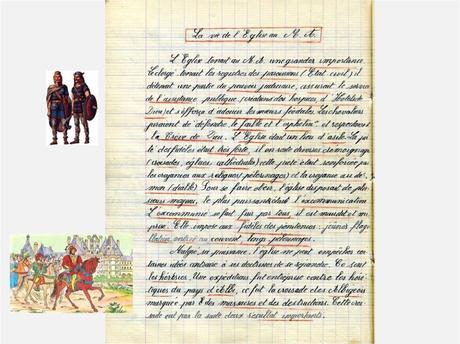 La vie de l'Eglise au M. A.
L'Eglise tenait au M.A. une grande importance.
Le clergé tenait les registres des paroissiens (l'Etat civil) il
détenait une partie du pouvoir judiciaire, assurait le service
de l'assistance publique (créations des hospices, d'Hôtels de
Dieu) et s'efforça d'adoucir les mœurs féodales. Les chevaliers
juraient de défendre le faible et l'orphelin et respectaient
la Trêve de Dieu. L'Eglise était un lieu d'asile. La pié
té des fidèles était très forte, il en reste divers témoignages
(croisades, églises, cathédrales) cette piété était renforcée par
les croyances aux reliques (pèlerinages) et la croyance au dé
mon (diable). Pour se faire obéir, l'église disposait de plu
sieurs moyens, le plus puissant était l'excommunication
L'excommunié se fait fuir par tous, il est maudit et en
prison. Elle impose aux fidèles des pénitences: jeûnes flagel
lation, entrée au couvent, longs pèlerinages.
Malgré sa puissance, l'église ne peut empêcher cer
taines idées contraires à ses doctrines de se répandre. Ce sont
les hérésies. Une expédition fut entreprise contre les héré
tiques du pays d'Albi, ce fut la croisade des Albigeois
marquée par des massacres et des destructions. Cette croi
sade eut par la suite deux résultats importants.